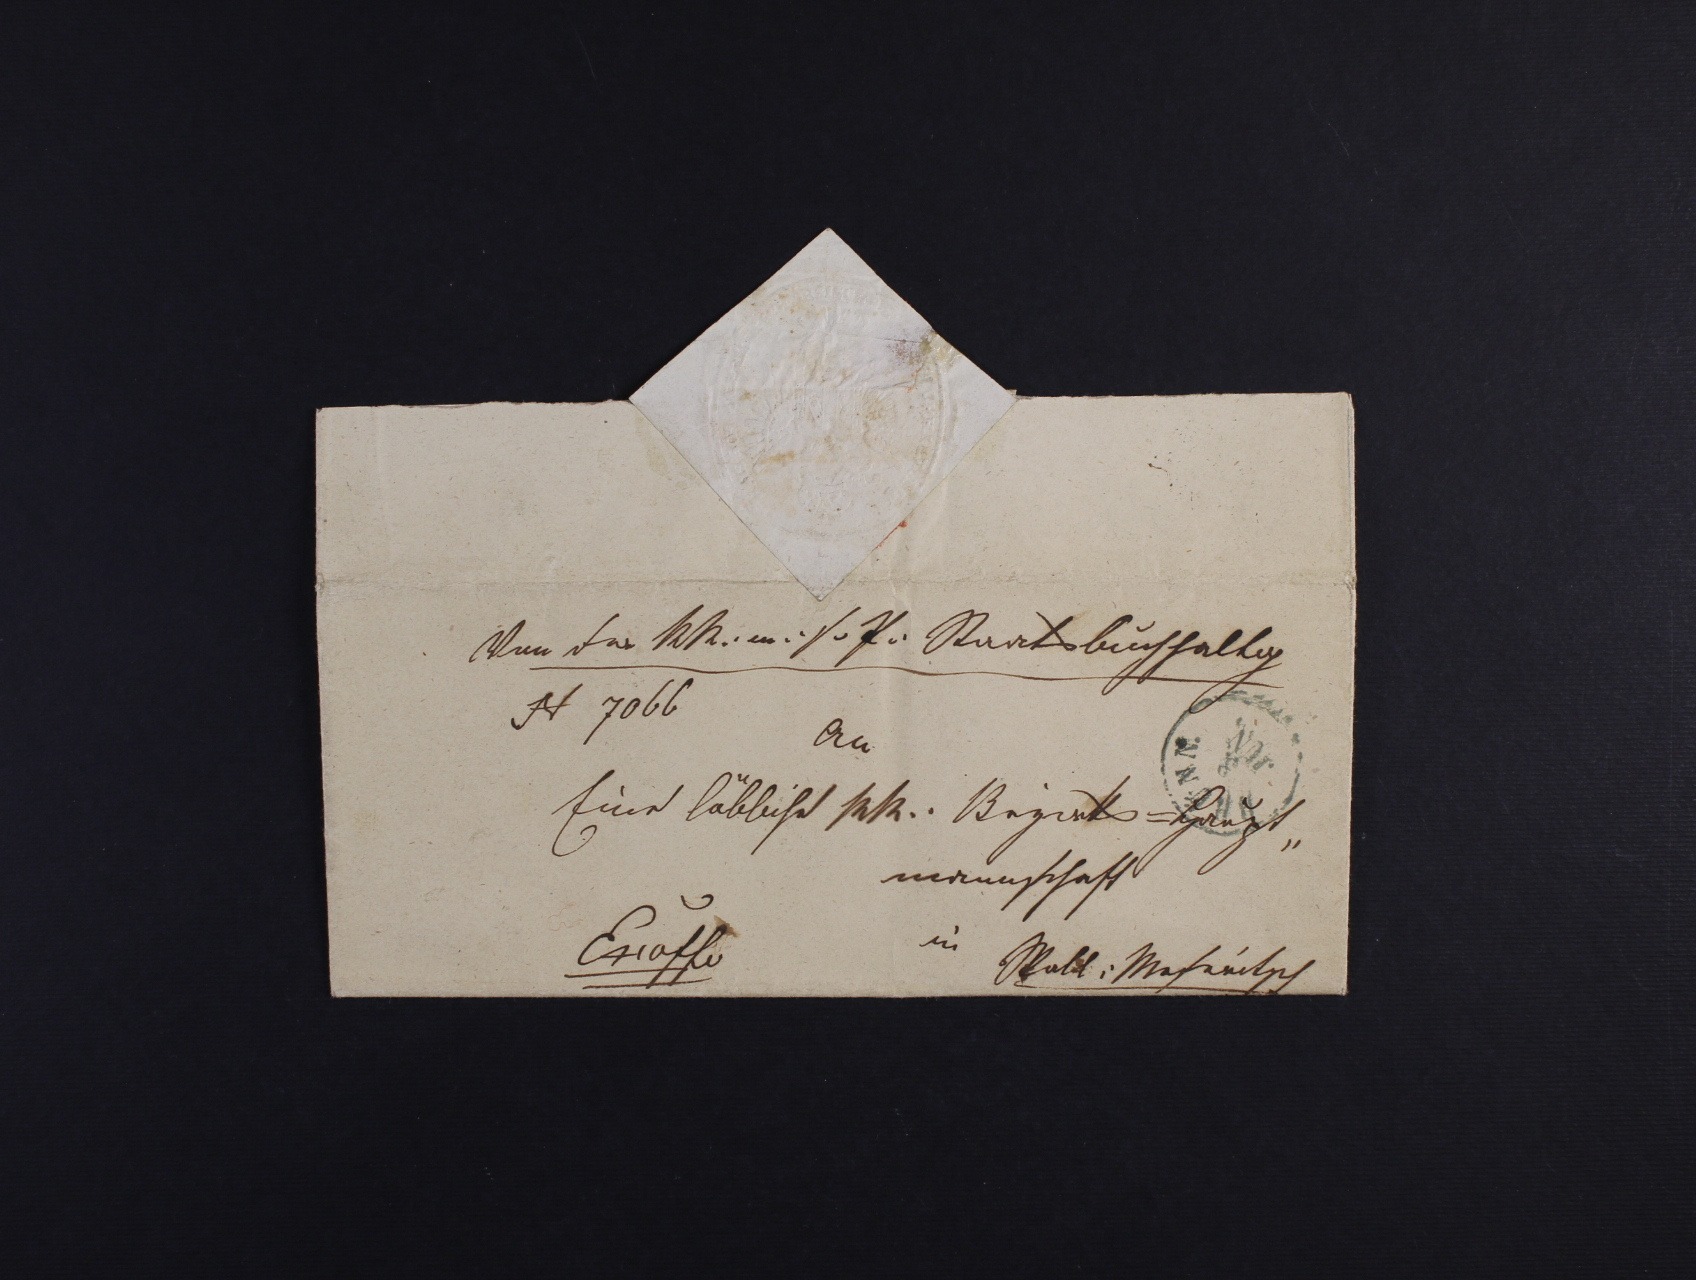 Von der kk: m: s: P: Staatsbuchhaltg
N 7066
An
Eine löbliche kk: Bezirks=Haupt„
mannschaft
in Wall: Meseritsch
Exoffo